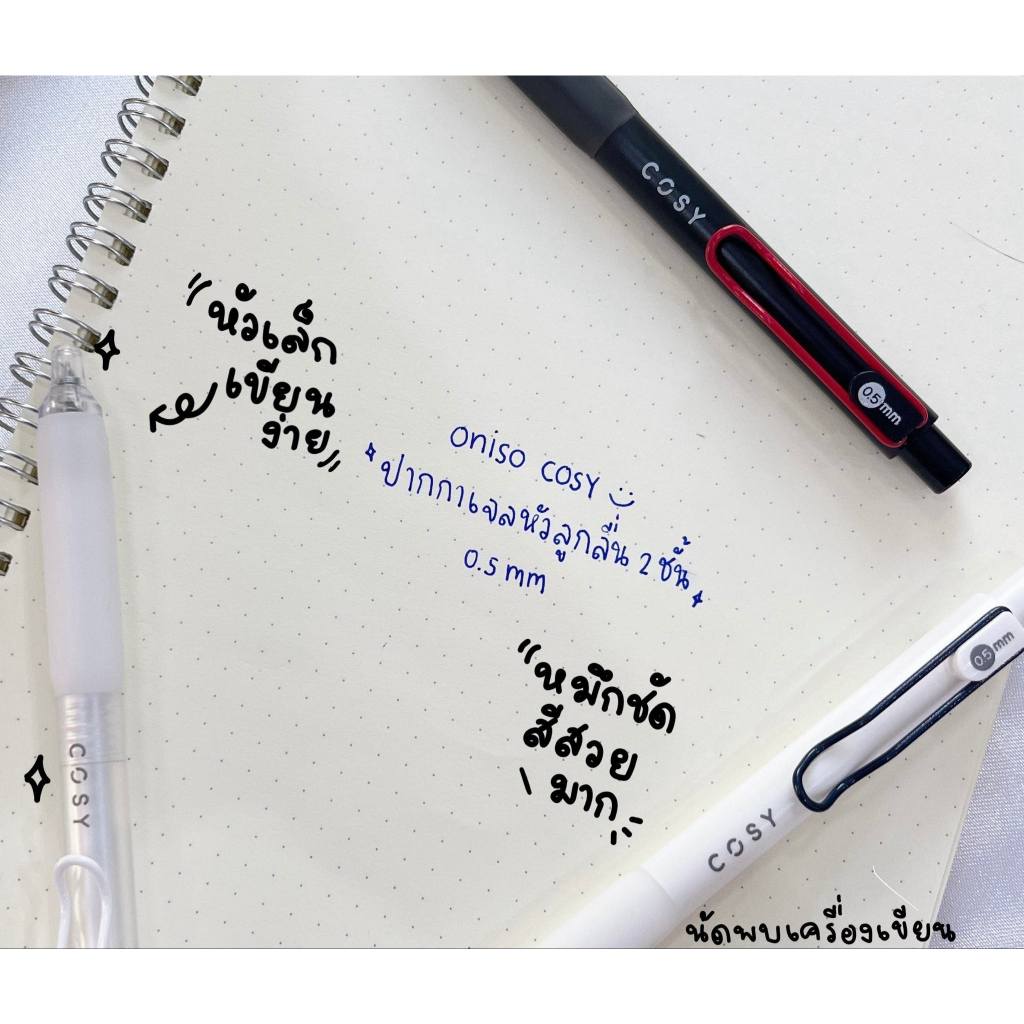 COSY
0.5 mm
"หัวเล็ก
เขียน
ง่าย"
oniso COSY
ปากกาเจลหัวลูกลื่น 2 ชั้น
0.5 mm
"หมึกชัด
สีสวย
มาก
COSY
0.5 mm
COSY
นัดพบเครื่องเขียน